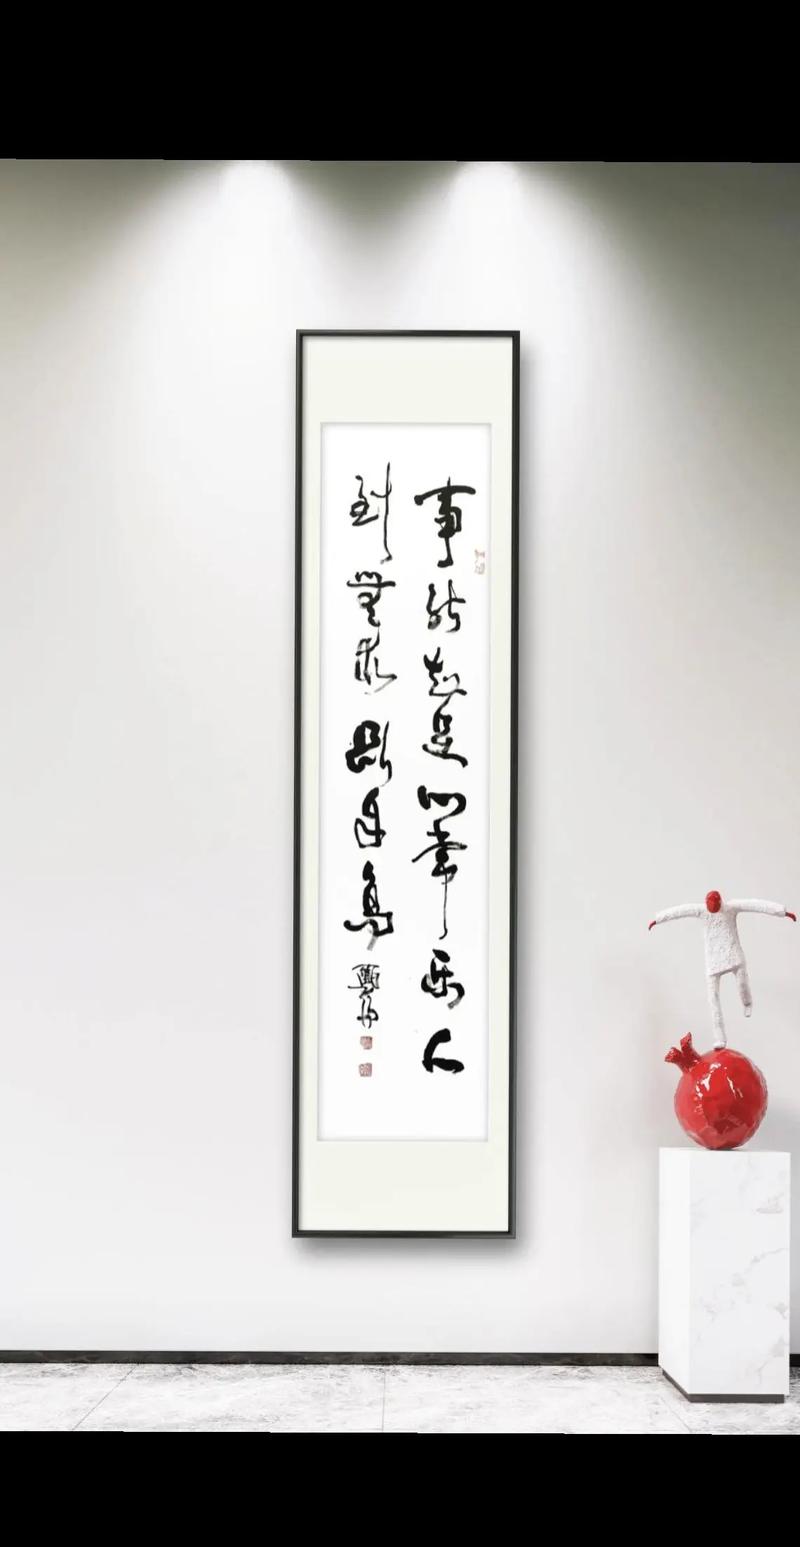 事能知足心常乐人
到無求品自高